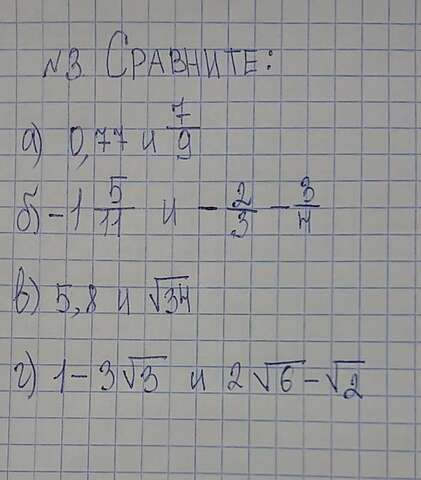 №3 Сравните:
а) 0,77 и 7/9
б) -1 5/11 и - 2/3 - 3/4
в) 5,8 и √34
г) 1 - 3√3 и 2√6 - √2